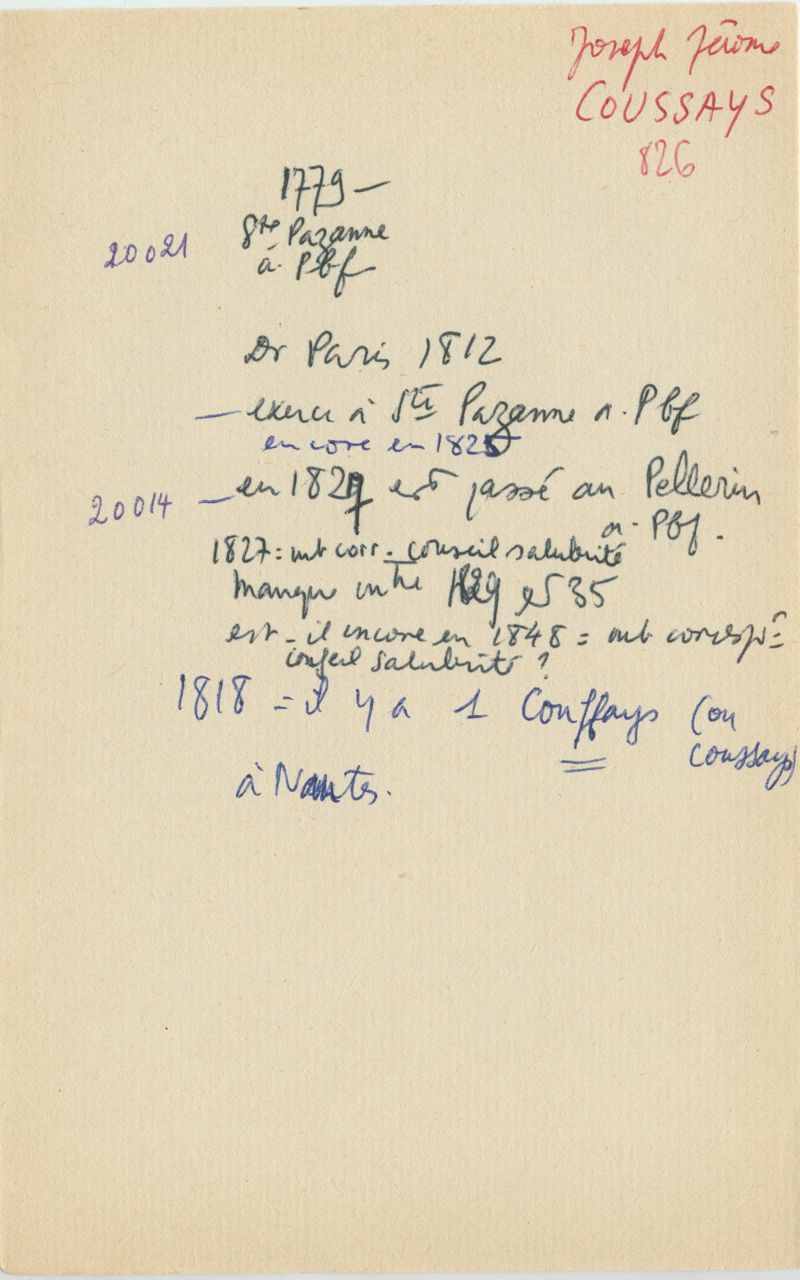 Joseph Jérôme
COUSSAYS
826
1779 –
20021 Ste Pazanne
a. Pbf
Dr Paris 1812
– exerce à Ste Pazanne a. Pbf
encore en 1825
20014 – en 1827 est passé au Pellerin
a. Pbf.
1827 : mb corr. conseil salubrité
manque entre 1829 et 35
est-il encore en 1848 = mb corresp
conseil salubrité ?
1818 = il y a 1 Couffays (ou
Coussays)
à Nantes.